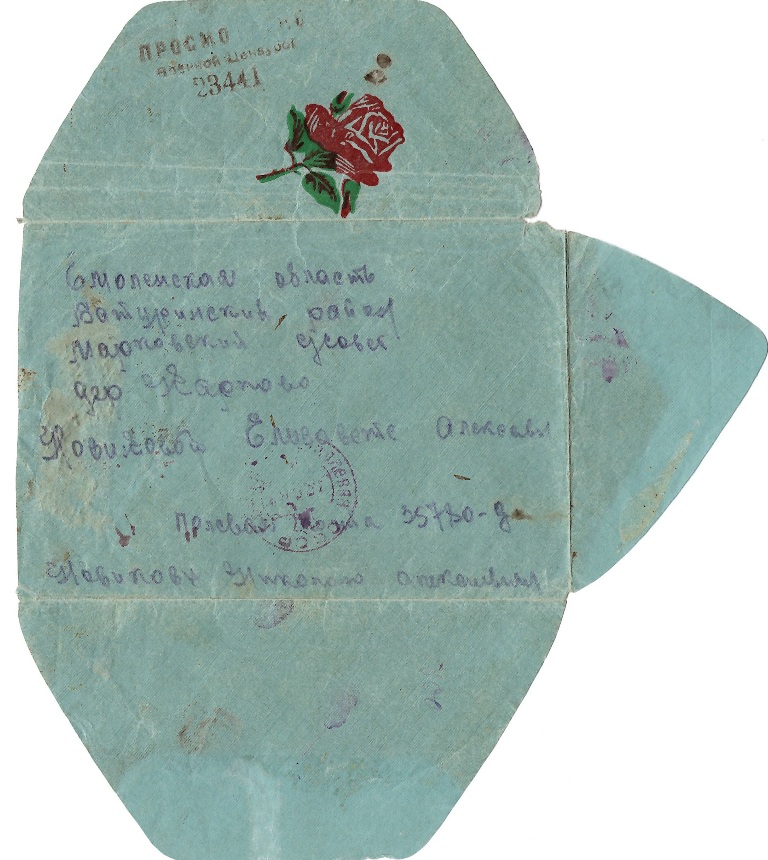 ПРОСМО
Военной Цензурой
23441
Смоленская область
Ботуринский район
Марковский с/совет
дер Карпово
Новиковой Елизавете Алексеевн
Полевая почта 35730-
Новикову Николаю